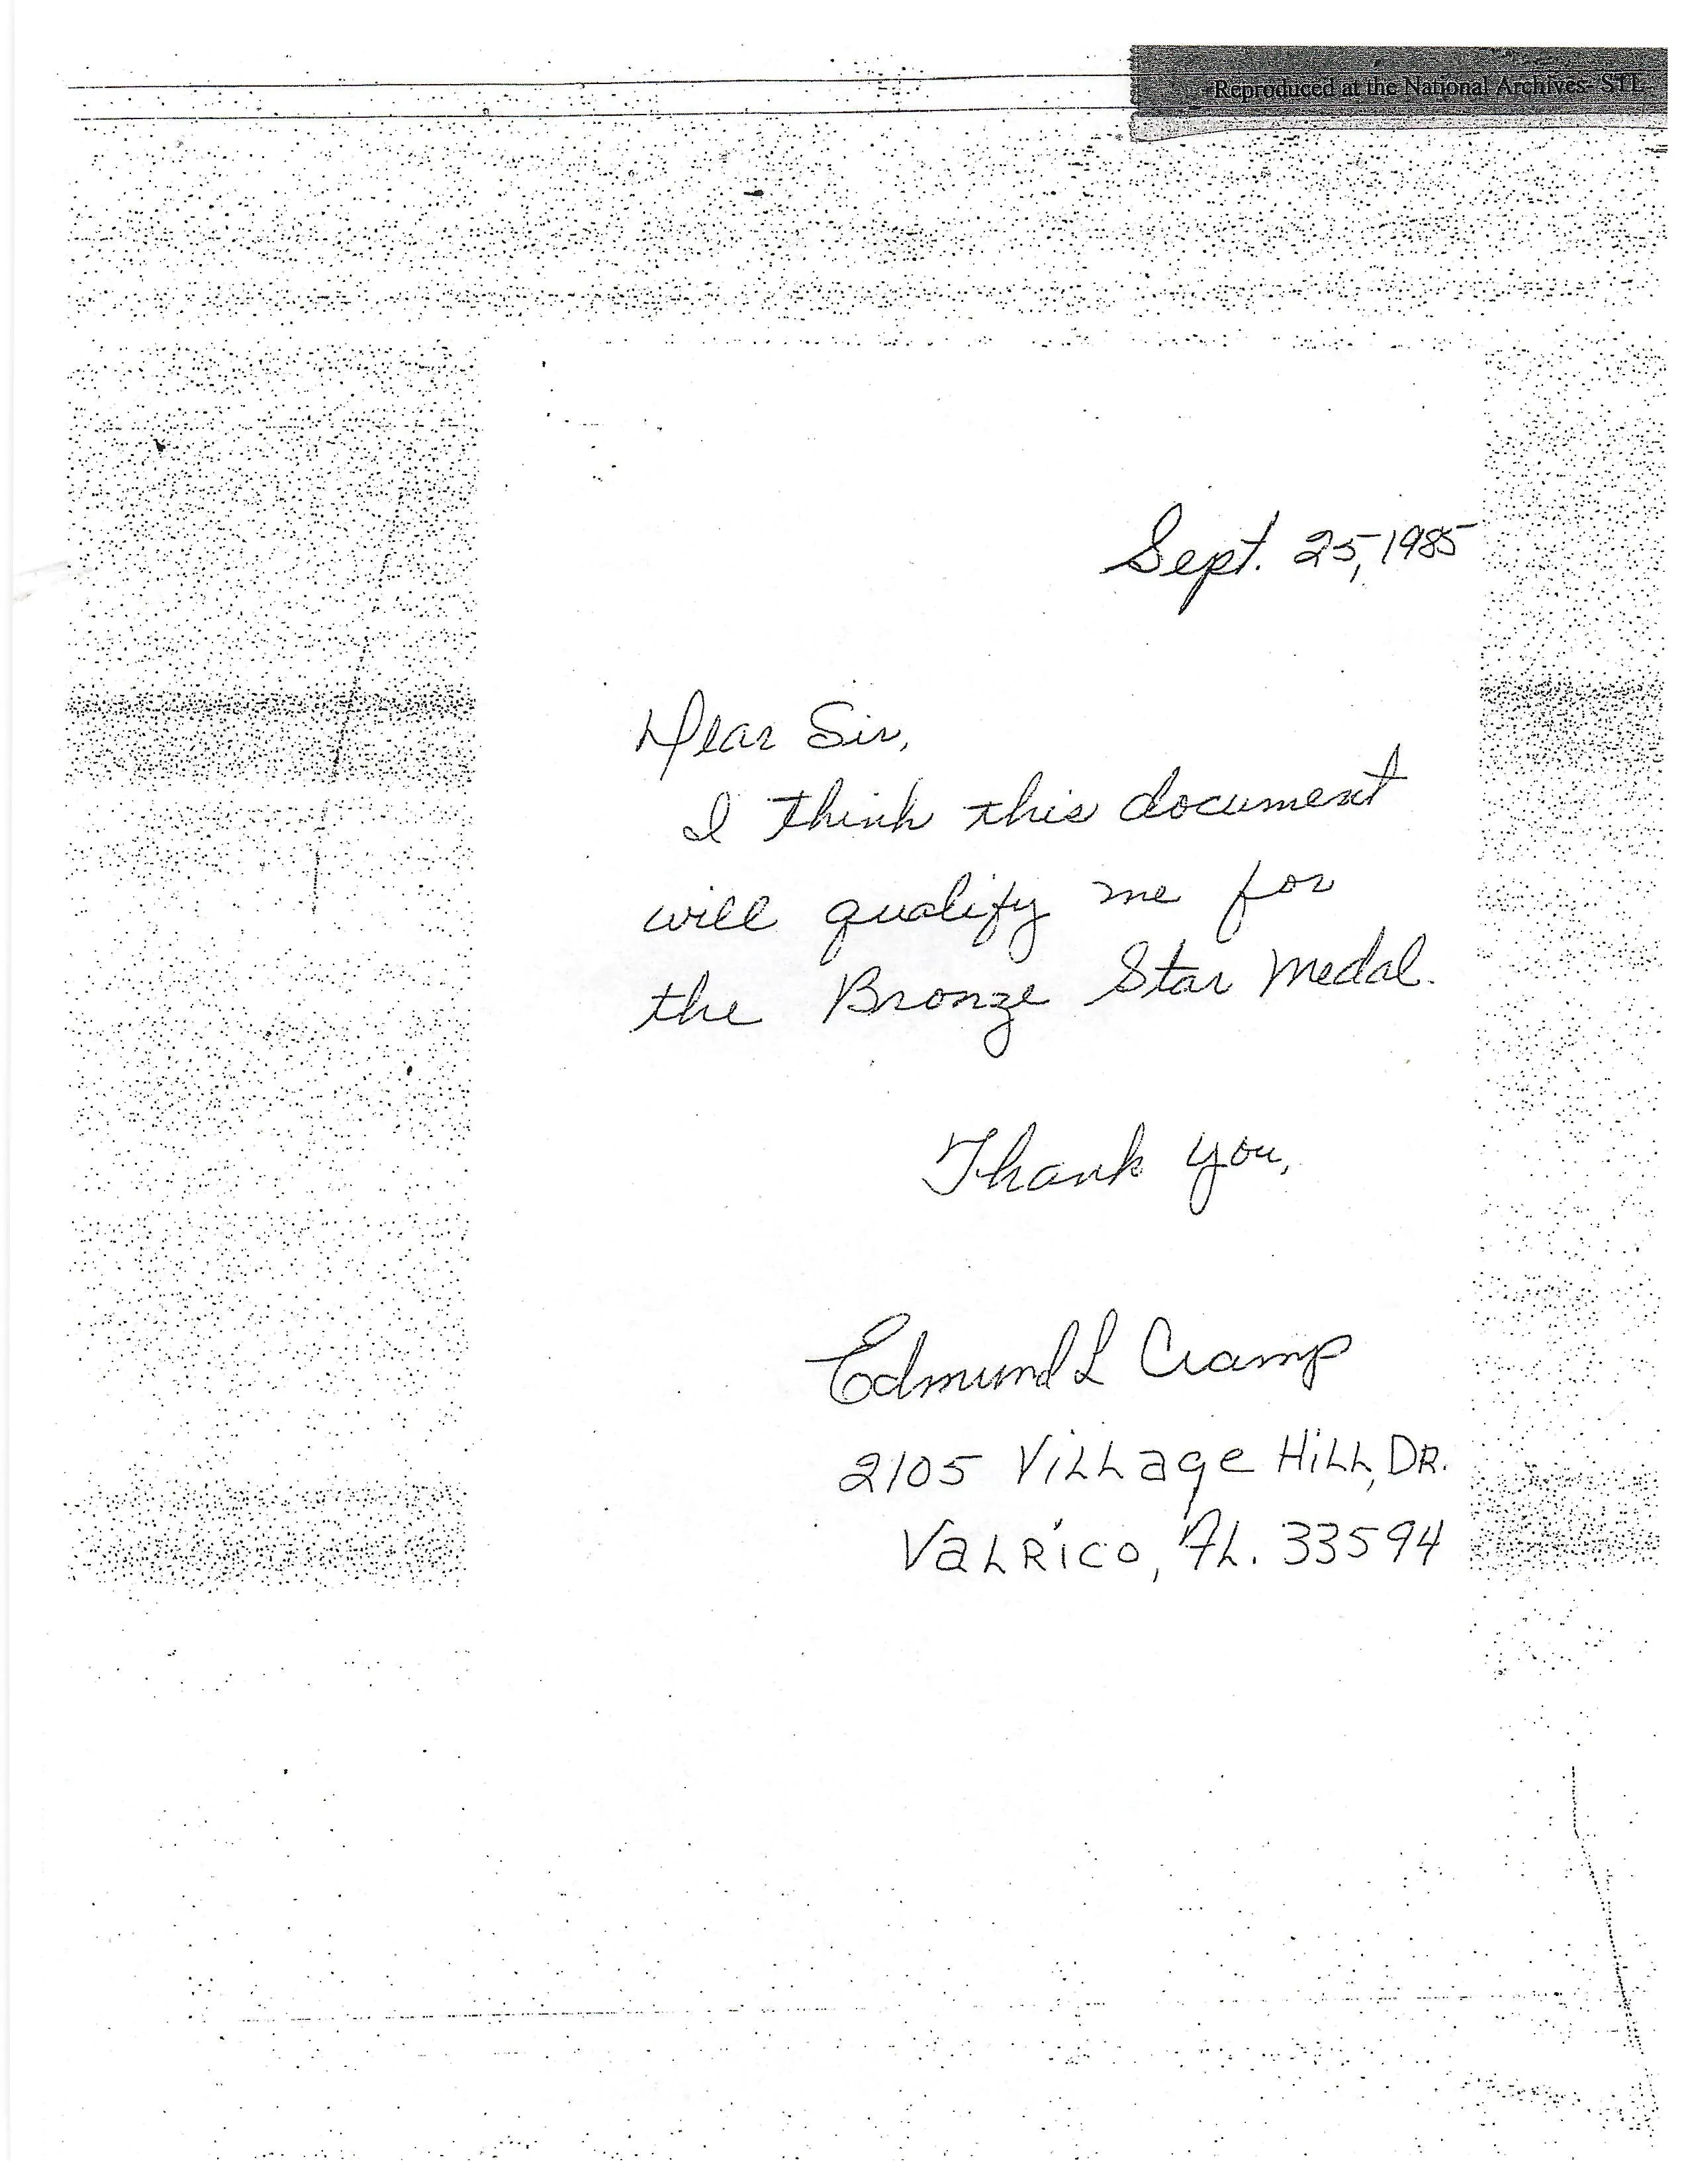 Reproduced at the National Archives- STL
Sept. 25, 1985
Dear Sir,
I think this document
will qualify me for
the Bronze Star Medal.
Thank you,
Edmund L Cramp
2105 Village Hill, DR.
Valrico, FL. 33594